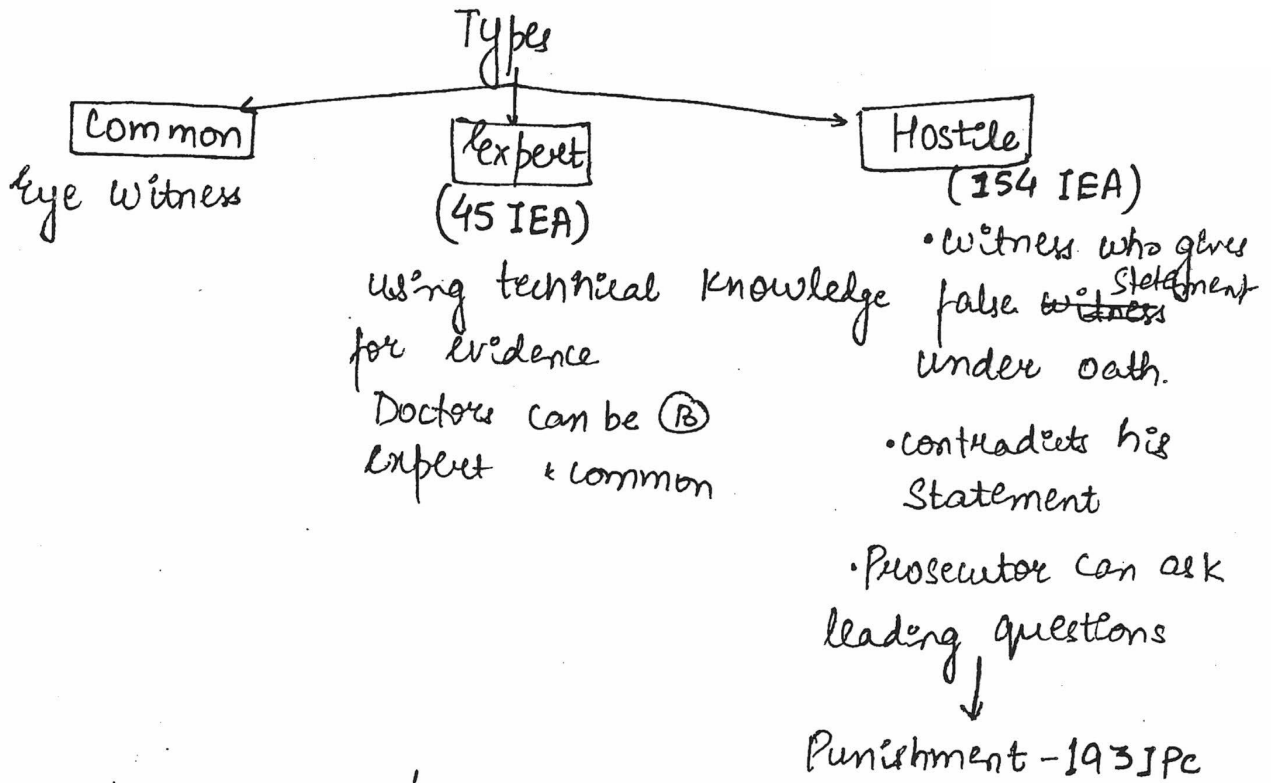 Types
Common
Eye Witness
Expert
(45 IEA)
using technical knowledge
for evidence
Doctors can be B
expert & common
Hostile
(154 IEA)
• Witness who gives
false witness Statement
under oath.
• contradicts his
Statement
• Prosecutor can ask
leading questions
Punishment - 193 IPC